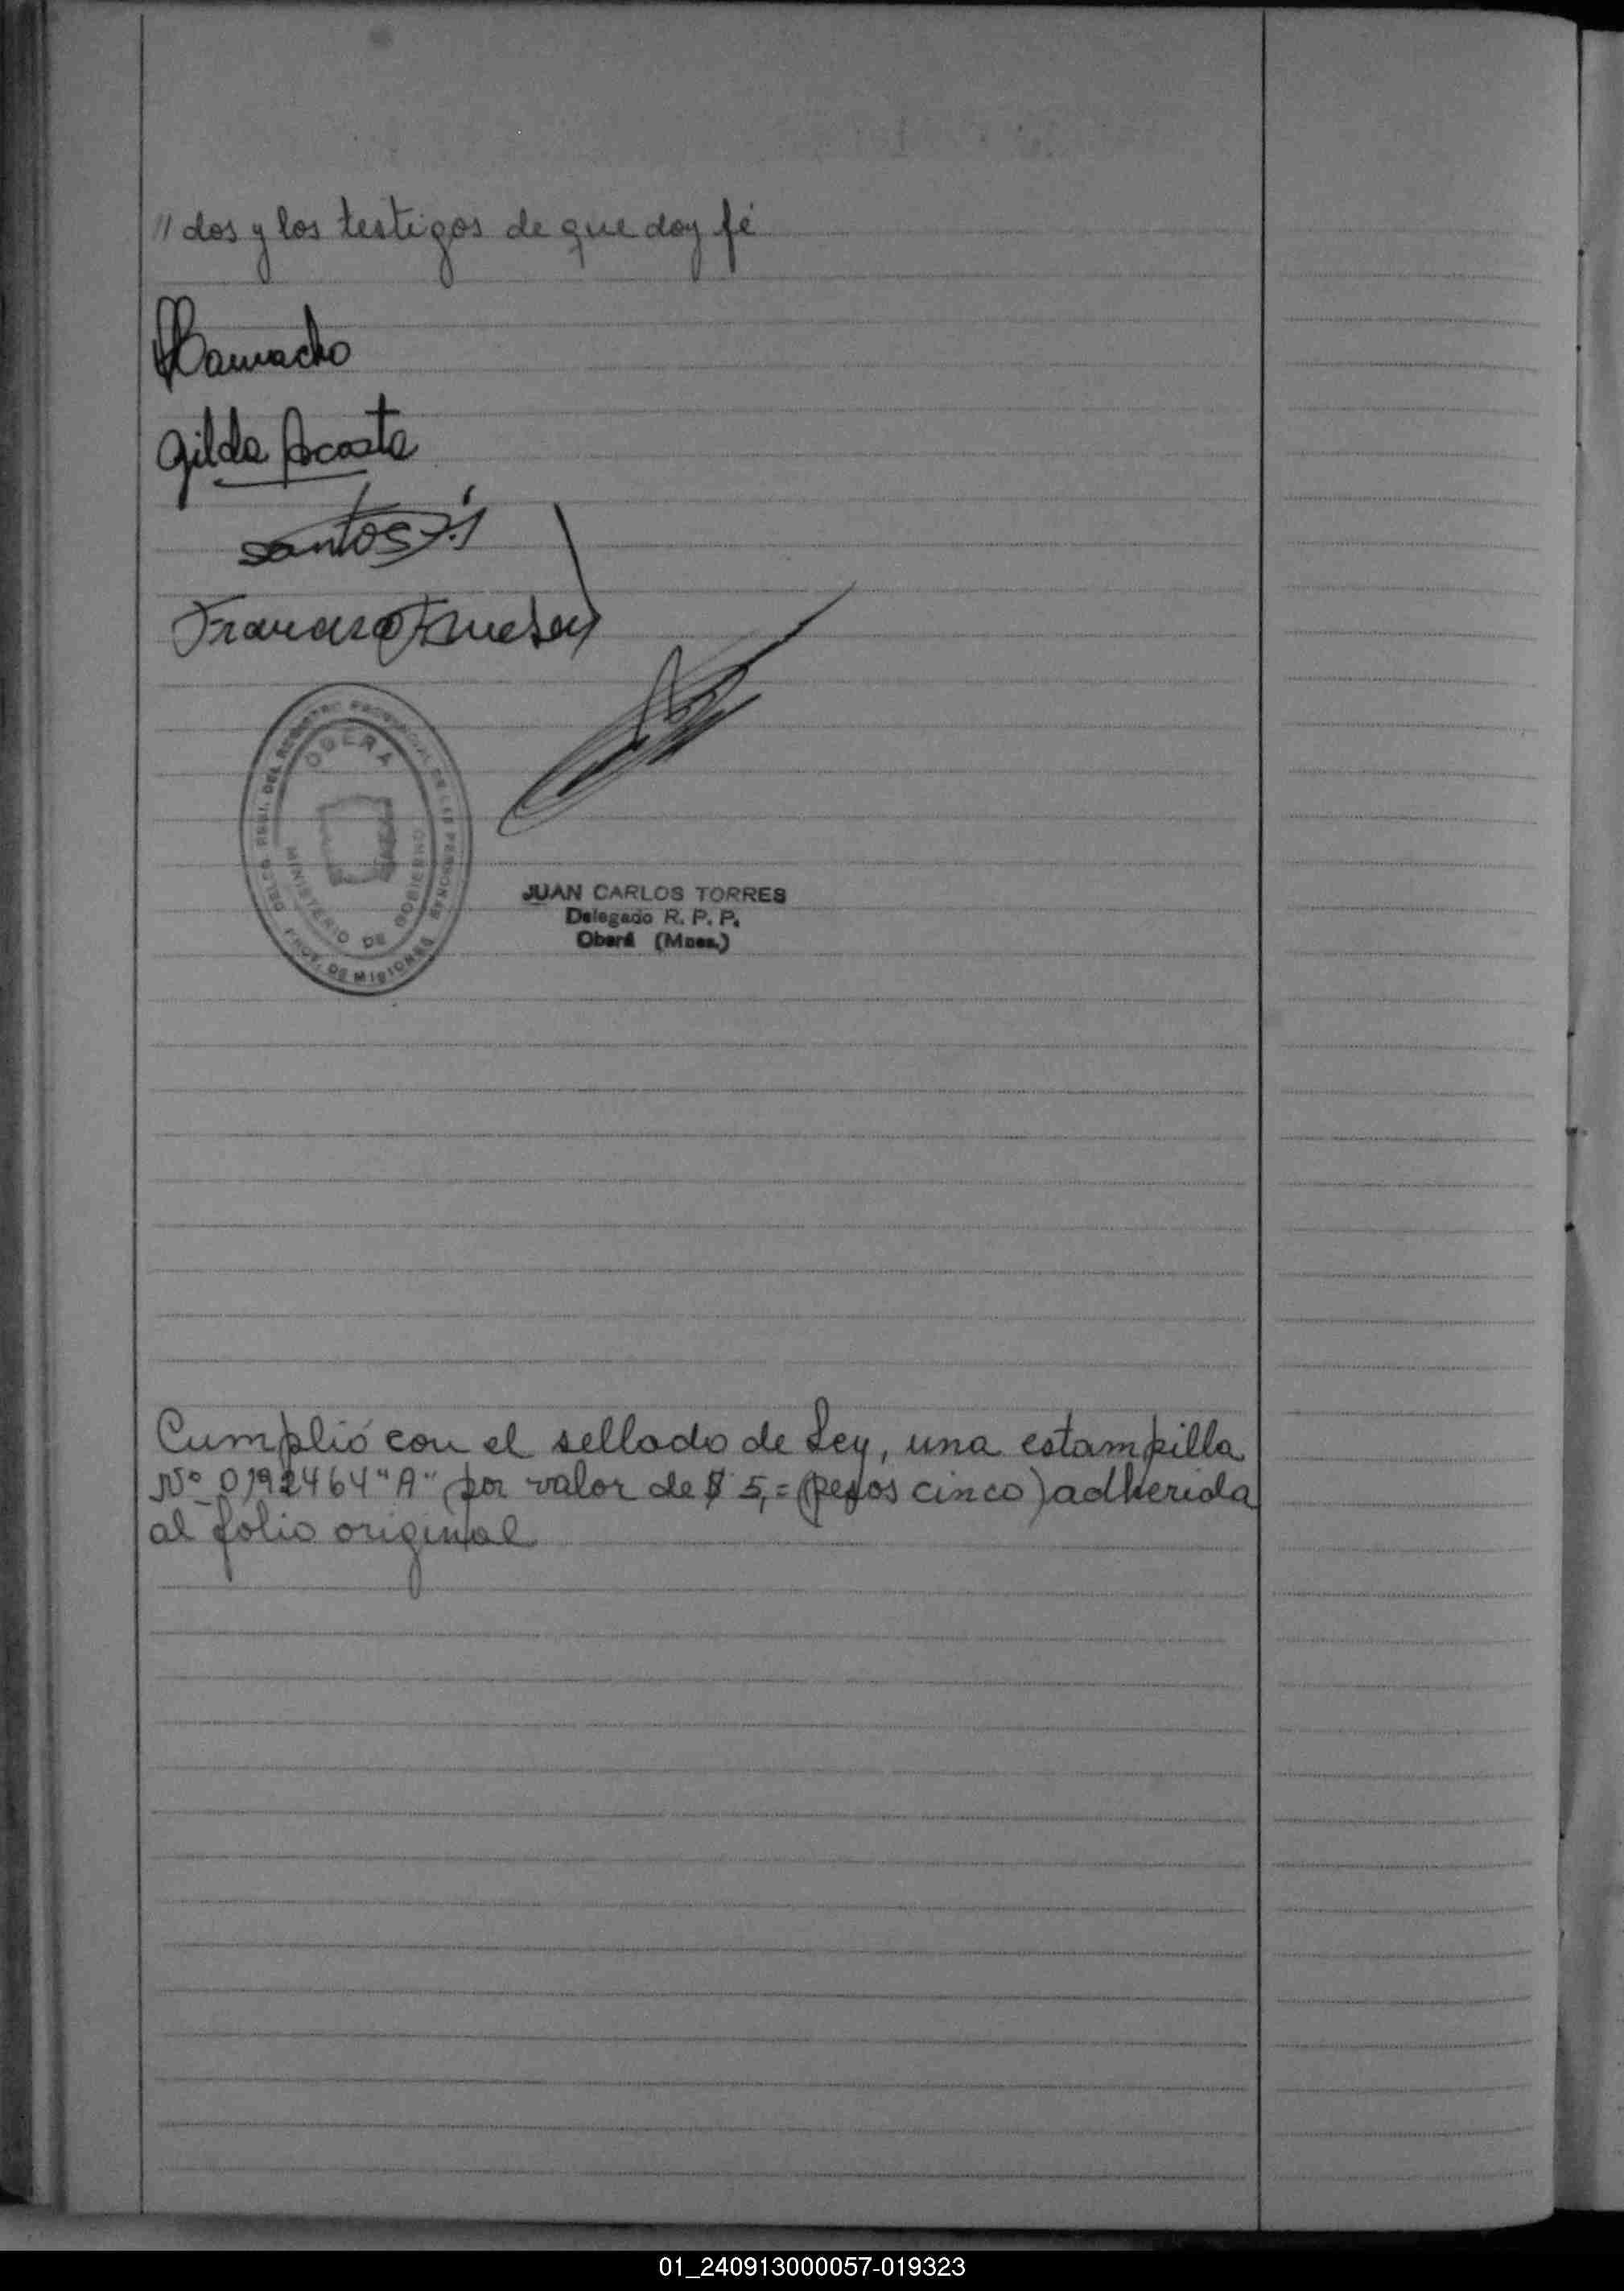 // dos y los testigos de que doy fé
Camacho
Gilda Acosta
Santos
Francisco
DELEG. DEL REGISTRO PROVINCIAL DE LAS PERSONAS
OBERA
MINISTERIO DE GOBIERNO
PROV. DE MISIONES
JUAN CARLOS TORRES
Delegado R. P. P.
Oberá (Mnes.)
Cumplió con el sellado de Ley, una estampilla
Nº 0192464 "A" por valor de $ 5,= (pesos cinco) adherida
al folio original
01_240913000057-019323